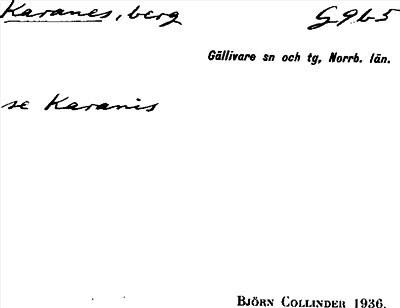 Karanes, berg G9b5
Gällivare sn och tg, Norrb. län.
se Karanis
BJÖRN COLLINDER 1936.